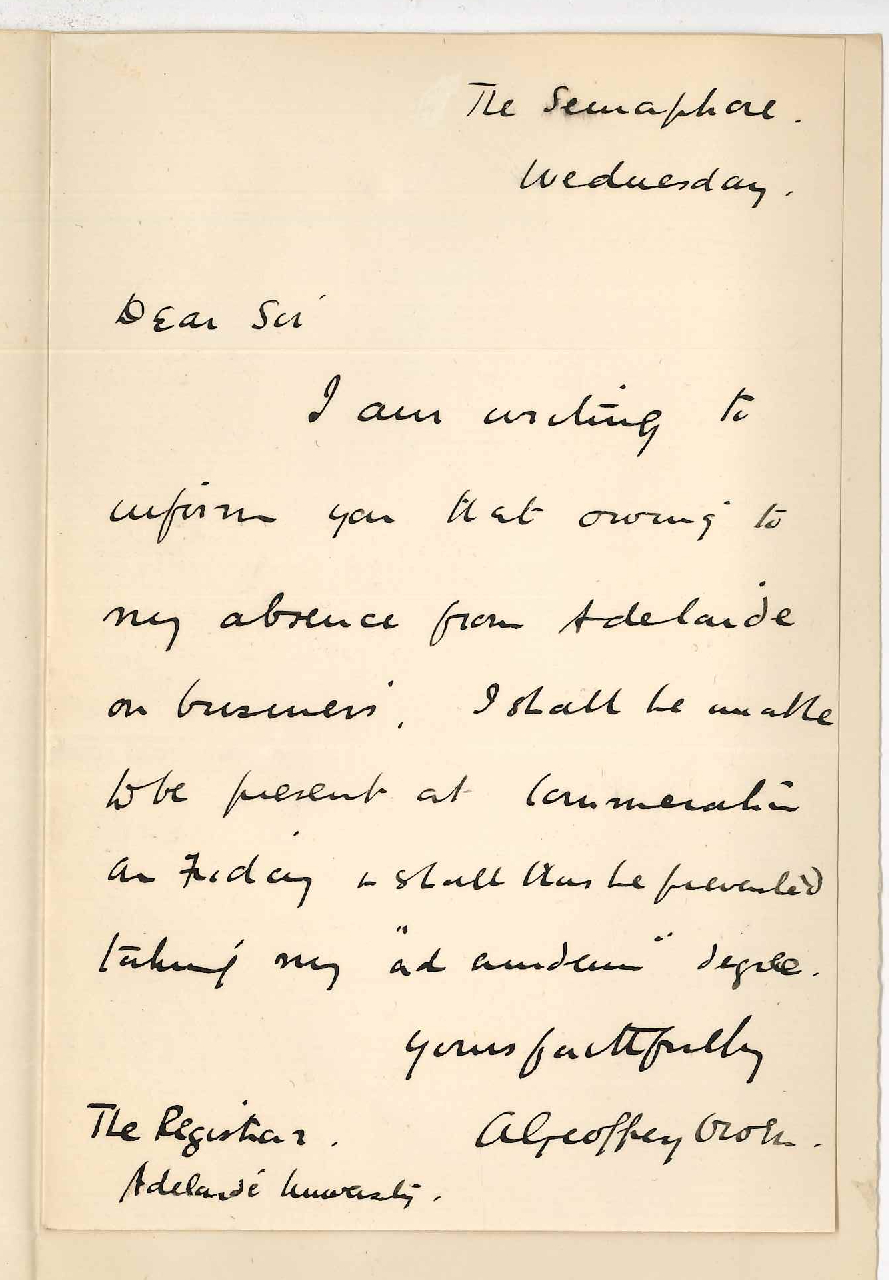 The Semaphore.
Wednesday.
Dear Sir
I am writing to
inform you that owing to
my absence from Adelaide
on business, I shall be unable
to be present at Commemoration
on Friday & shall thus be prevented
taking my "ad eundem" degree.
yours faithfully
The Registrar.
A Geoffrey
Adelaide University.